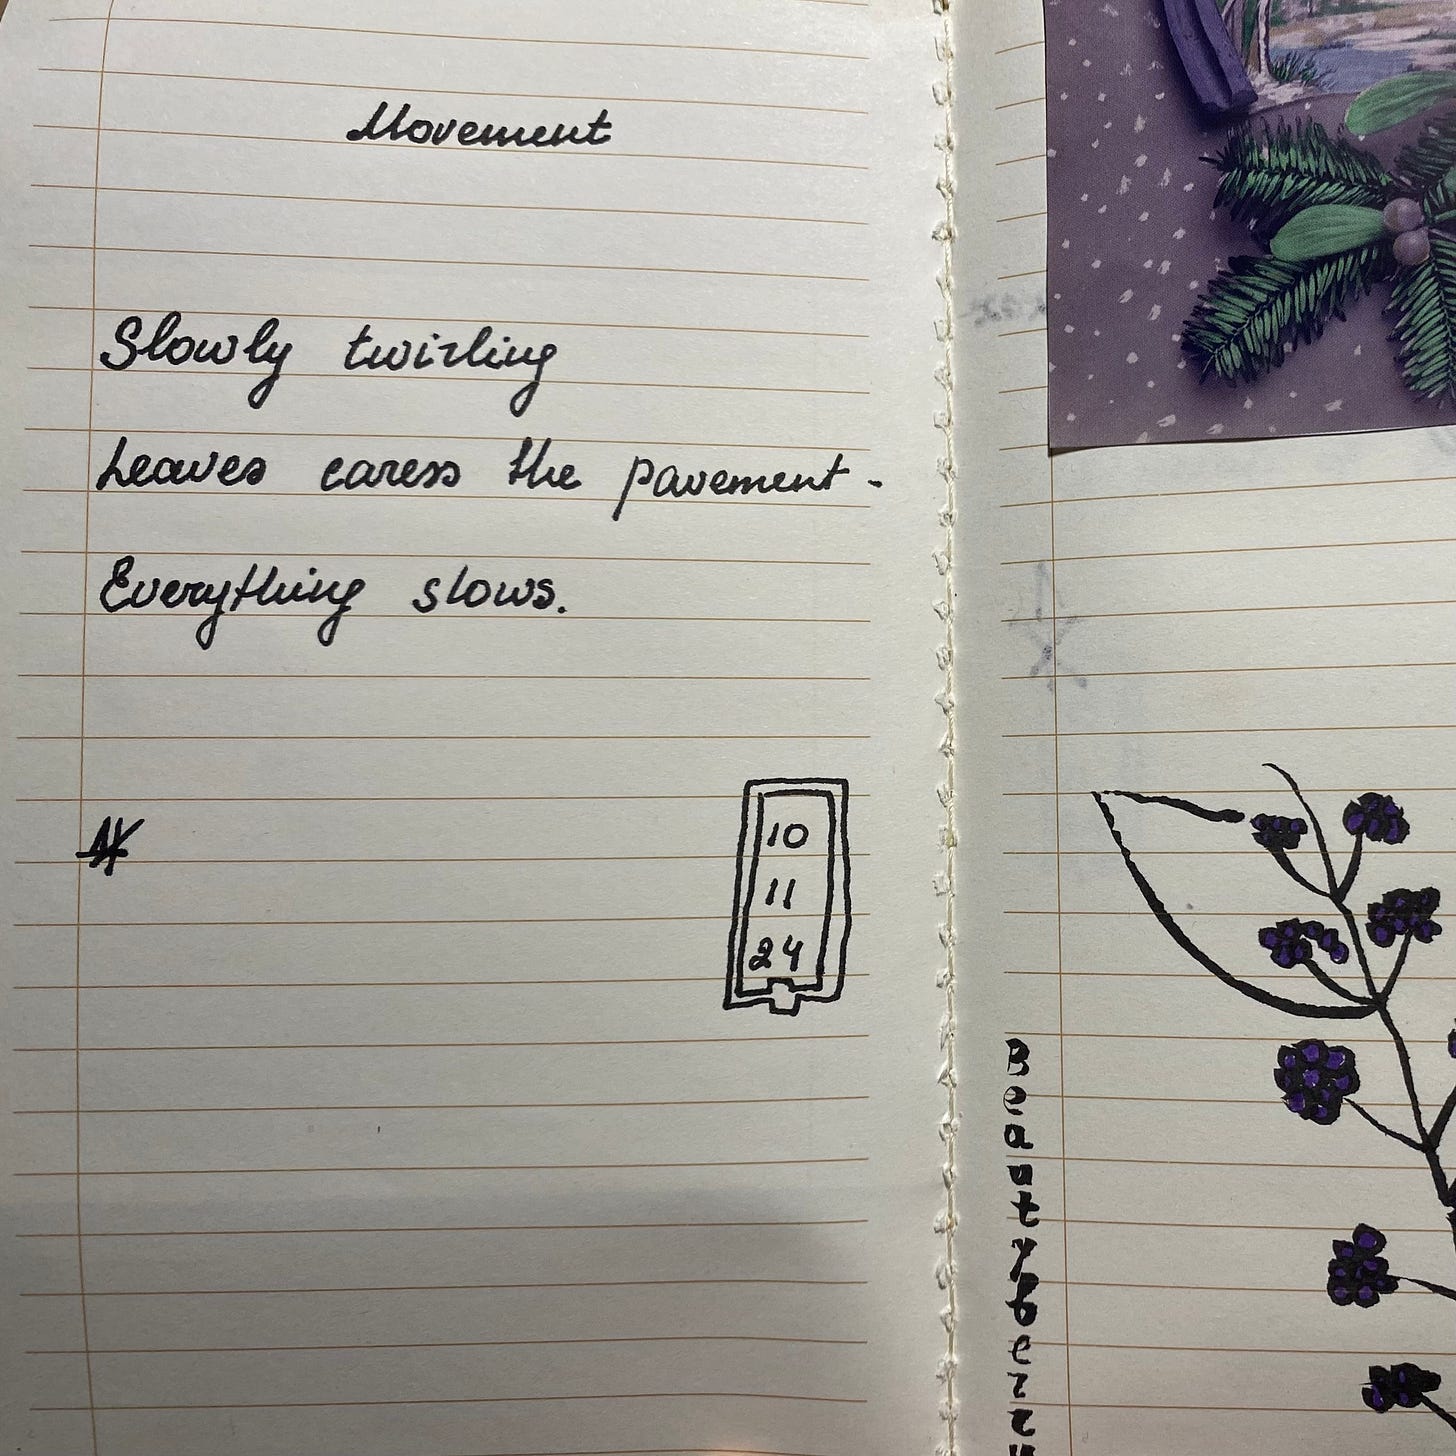 Movement
Slowly twirling
Leaves caress the pavement -
Everything slows.
10
11
24
Beautyberry